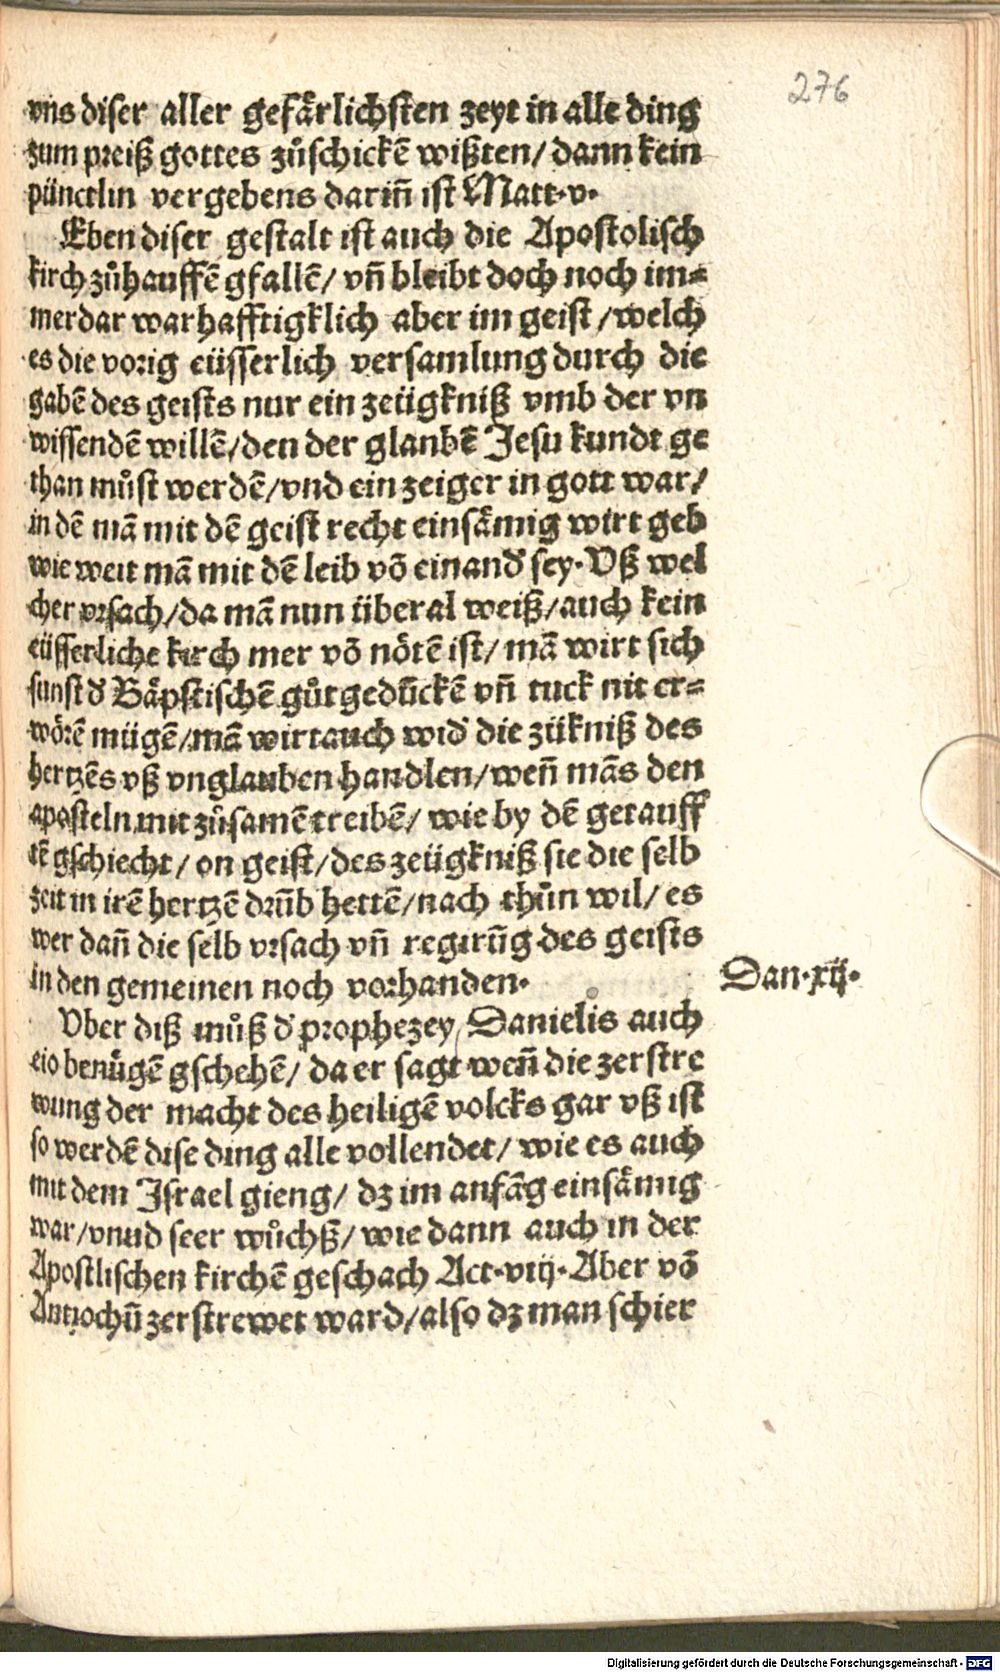 276
vns diser aller gefärlichsten zeyt in alle ding
zum preiß gottes zůschickē wißten/ dann kein
pünctlin vergebens dariñ ist Matt.v.
Eben diser gestalt ist auch die Apostolisch
kirch zůhauffē gfallē/ vñ bleibt doch noch im=
merdar warhafftigklich aber im geist /welch
es die vorig eüsserlich versamlung durch die
gabē des geists nur ein zeügkniß vmb der vn
wissendē willē/den der glaubē Jesu kundt ge
than můst werdē/vnd ein zeiger in gott war/
in dē mā mit dē geist recht einsämig wirt geb
wie weit mā mit dē leib vō einand' sey. Vß wel
cher vrsach/da mā nun überal weiß/auch kein
eüsserliche kirch mer vō nötē ist/ mā wirt sich
sunst d' Bäpstischē gůtgedūckē vñ tuck nit er=
wörē mügē/mā wirt auch wid' die zükniß des
hertzēs vß vnglauben handlen/weñ mās den
aposteln mit zůsamē treibē/ wie by dē getauff
tē gschiecht/ on geist/des zeügkniß sie die selb
zeit in irē hertzē drūb hettē/nach thůn wil/ es
wer dañ die selb vrsach vñ regirūg des geists
in den gemeinen noch vorhanden.
Dan.xij.
Vber diß můß d' prophezey Danielis auch
eio benügē gschehē/ da er sagt weñ die zerstre
wung der macht des heiligē volcks gar vß ist
so werdē dise ding alle vollendet/ wie es auch
mit dem Israel gieng/ dz im anfāg einsämig
war/vnud seer wůchß/ wie dann auch in der
Apostlischen kirchē geschach Act.viij. Aber vō
Antiochū zerstrewet ward/also dz man schier
Digitalisierung gefördert durch die Deutsche Forschungsgemeinschaft - DFG